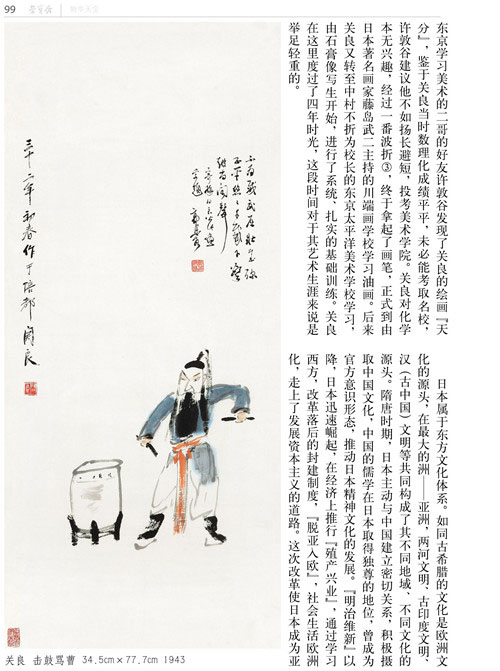 99
东京学习美术的二哥的好友许敦谷发现了关良的绘画『天
分』，鉴于关良当时数理化成绩平平，未必能考取名校，
许敦谷建议他不如扬长避短，投考美术学院。关良对化学
本无兴趣，经过一番波折③，终于拿起了画笔，正式到由
日本著名画家藤岛武二主持的川端画学校学习油画。后来
关良又转至中村不折为校长的东京太平洋美术学校学习，
由石膏像写生开始，进行了系统、扎实的基础训练。关良
在这里度过了四年时光，这段时间对于其艺术生涯来说是
举足轻重的。
日本属于东方文化体系。如同古希腊的文化是欧洲文
化的源头，在最大的洲——亚洲，两河文明、古印度文明，
汉（古中国）文明等共同构成了其不同地域、不同文化的
源头。隋唐时期，日本主动与中国建立密切关系，积极摄
取中国文化，中国的儒学在日本取得独尊的地位，曾成为
官方意识形态，推动日本精神文化的发展。『明治维新』以
降，日本迅速崛起，在经济上推行『殖产兴业』，通过学习
西方，改革落后的封建制度，『脱亚入欧』，社会生活欧洲
化，走上了发展资本主义的道路。这次改革使日本成为亚
三十二年初春作于陪都 关良
关良 击鼓骂曹 34.5cm×77.7cm 1943